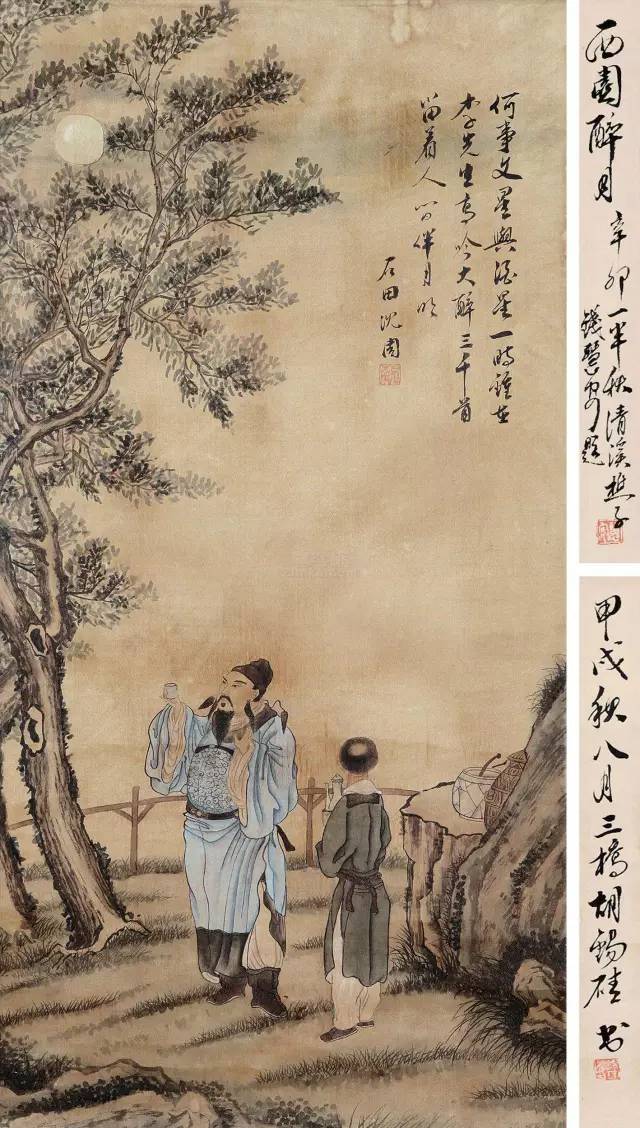 西園醉月
辛卯一半秋清溪樵子
錢慧安題
甲戌秋八月三橋胡錫珪書
何事文星與酒星一時鍾在
李先生高吟大醉三千首
留着人间伴月明
石田沈周